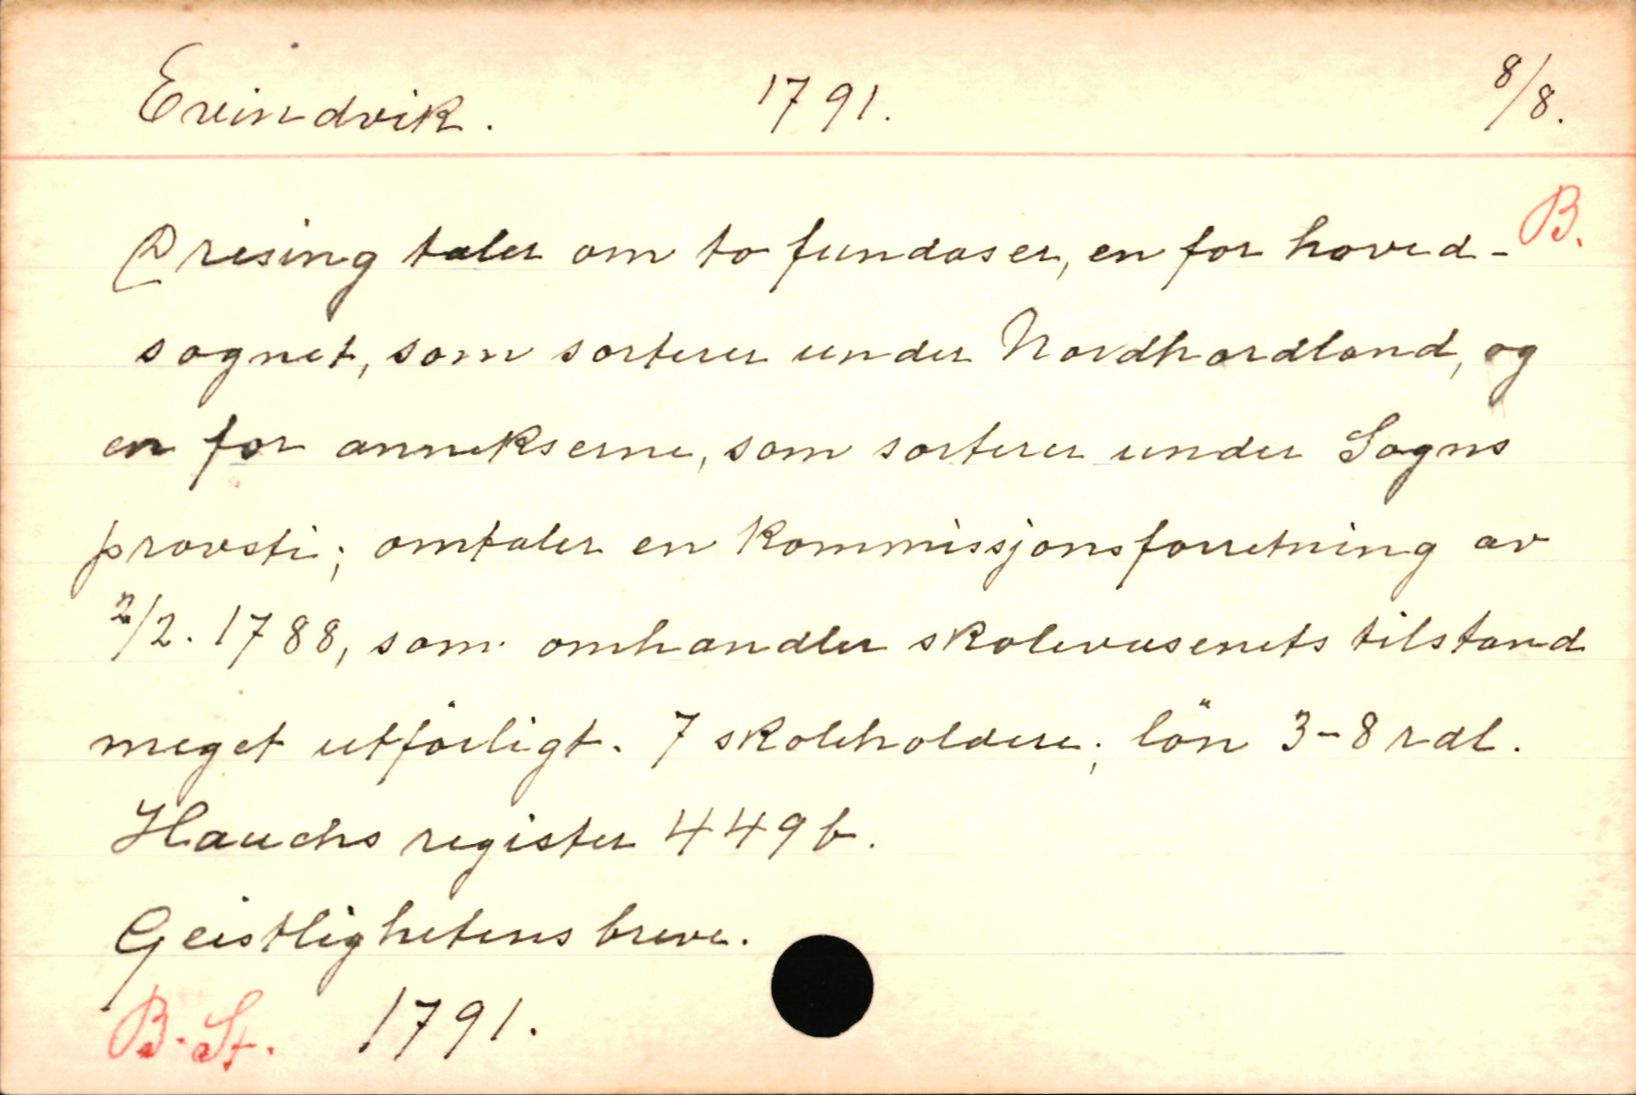 Evindvik. 1791. 8/8.
B.
Presing taler om to fundaser, en for hoved-
sognet, som sorterer under Nordhordland, og
en for annekserne, som sorterer under Sogns
provsti; omtaler en kommissjonsforretning av
2/2. 1788, som omhandler skolevæsenets tilstand
meget utförligt. 7 skoleholdere; lön 3-8 rdl.
Hauchs register 449 b.
Geistlighetens breve.
B. St. 1791.